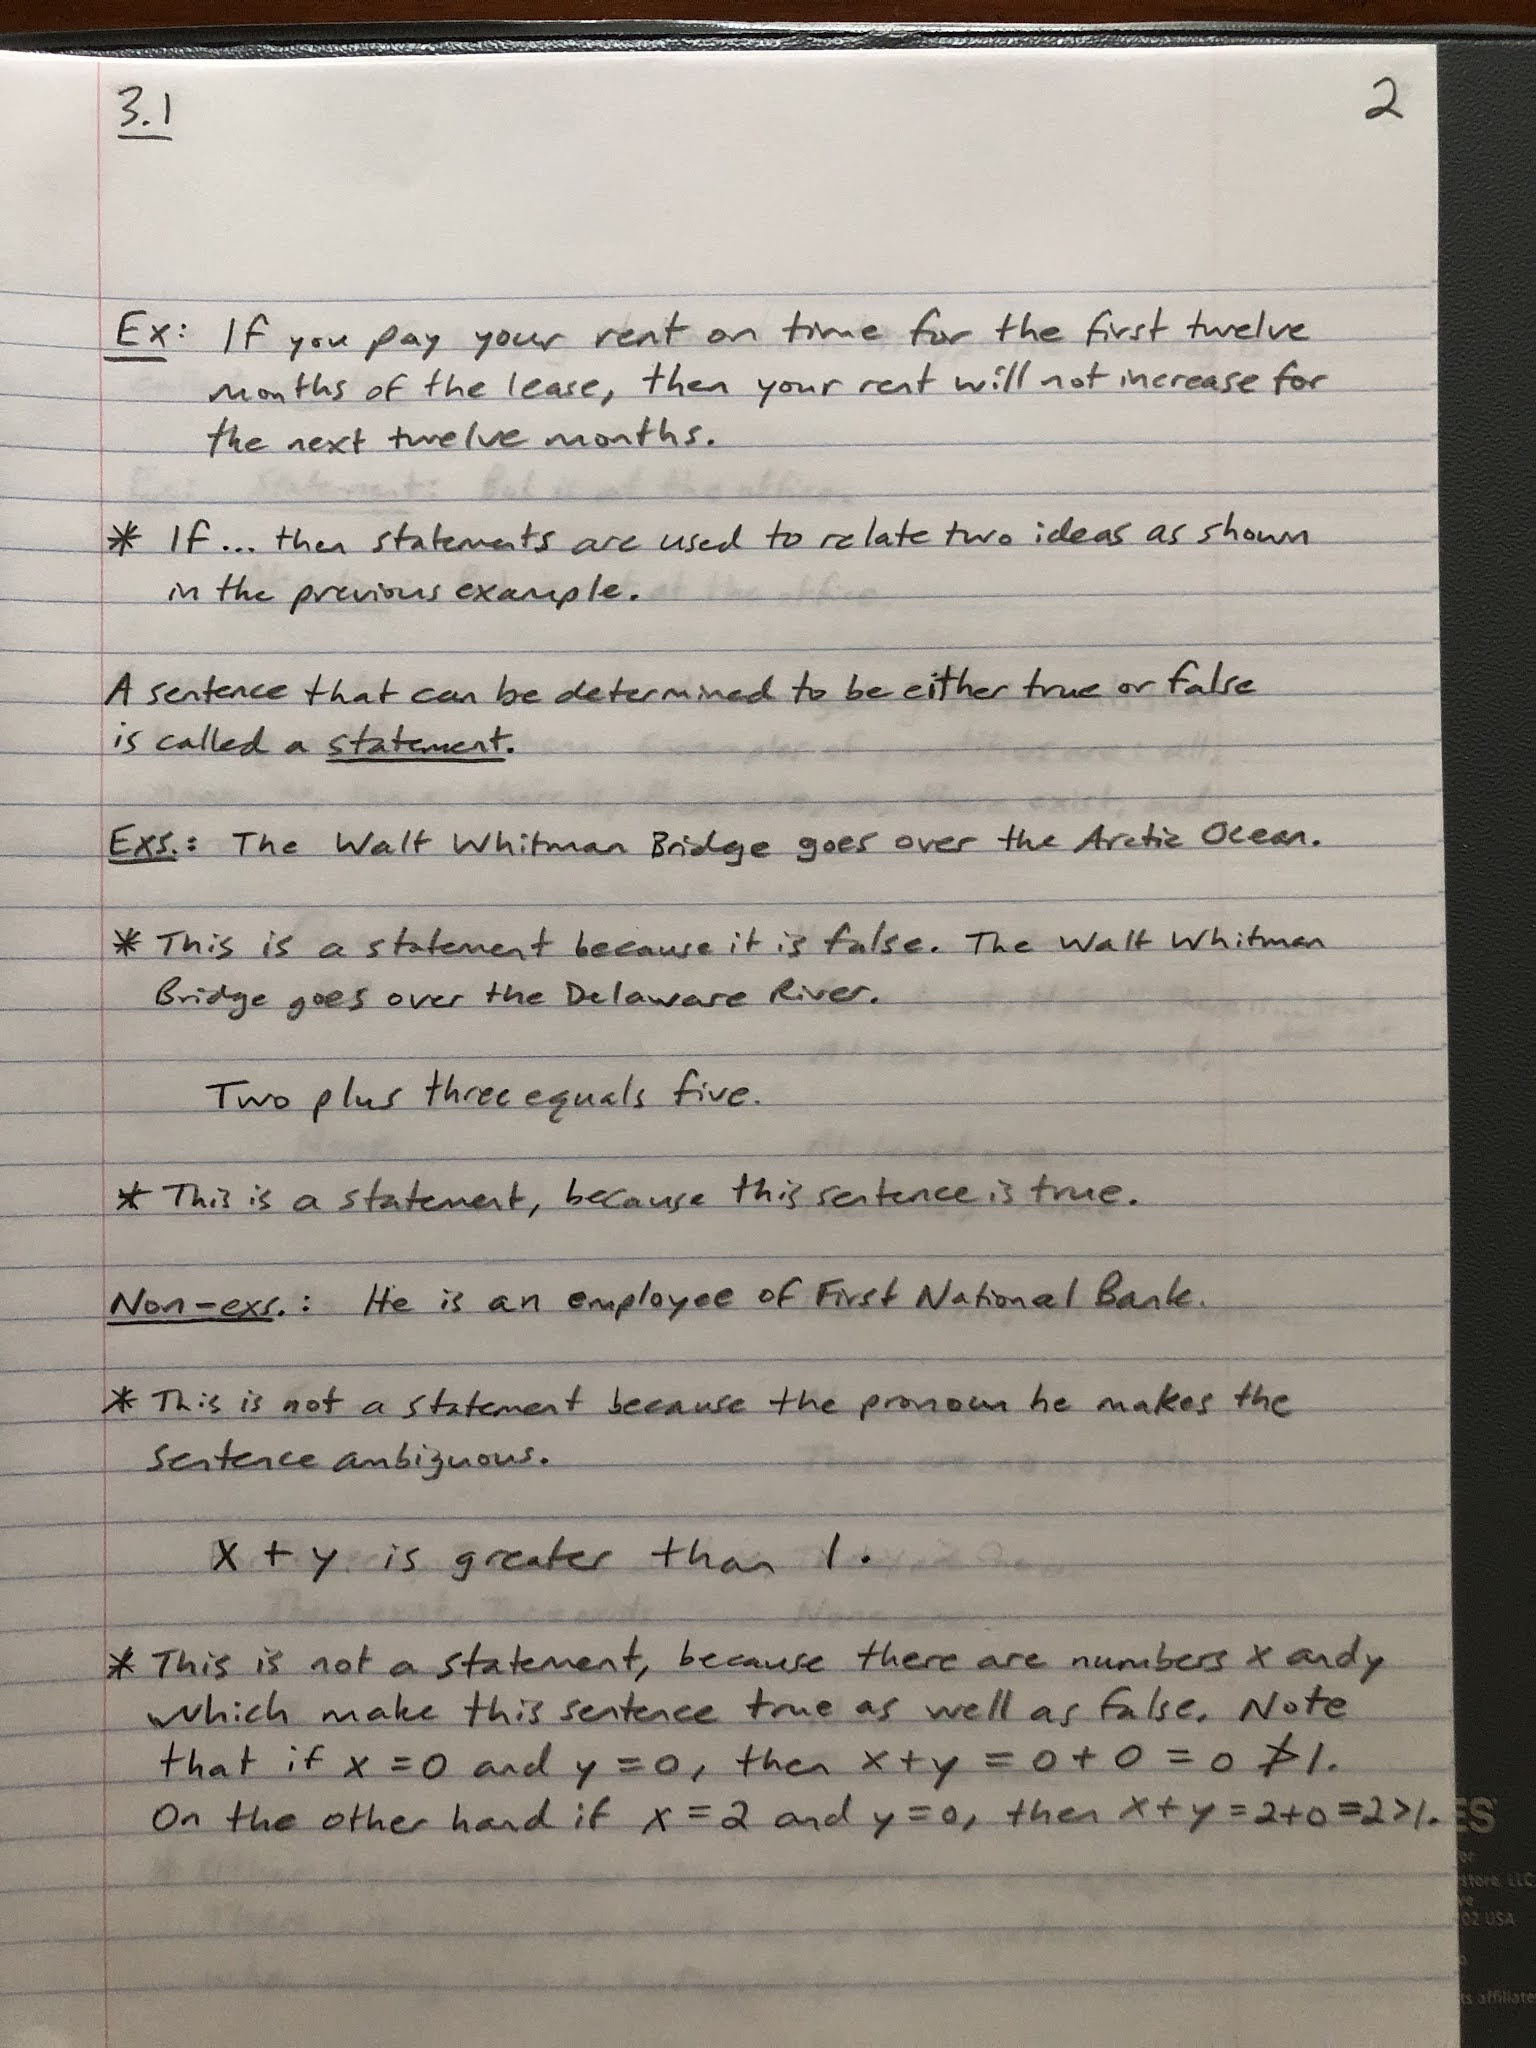 3.1
2
Ex: If you pay your rent on time for the first twelve
months of the lease, then your rent will not increase for
the next twelve months.
* If... then statements are used to relate two ideas as shown
in the previous example.
A sentence that can be determined to be either true or false
is called a statement.
Exs.: The Walt Whitman Bridge goes over the Arctic Ocean.
* This is a statement because it is false. The Walt Whitman
Bridge goes over the Delaware River.
Two plus three equals five.
* This is a statement, because this sentence is true.
Non-exs.: He is an employee of First National Bank.
* This is not a statement because the pronoun he makes the
sentence ambiguous.
x + y is greater than 1.
* This is not a statement, because there are numbers x and y
which make this sentence true as well as false. Note
that if x = 0 and y = 0, then x + y = 0 + 0 = 0 ≯ 1.
On the other hand if x = 2 and y = 0, then x + y = 2+0 = 2 > 1.
ES
store, LLC
02 USA
ts affiliate